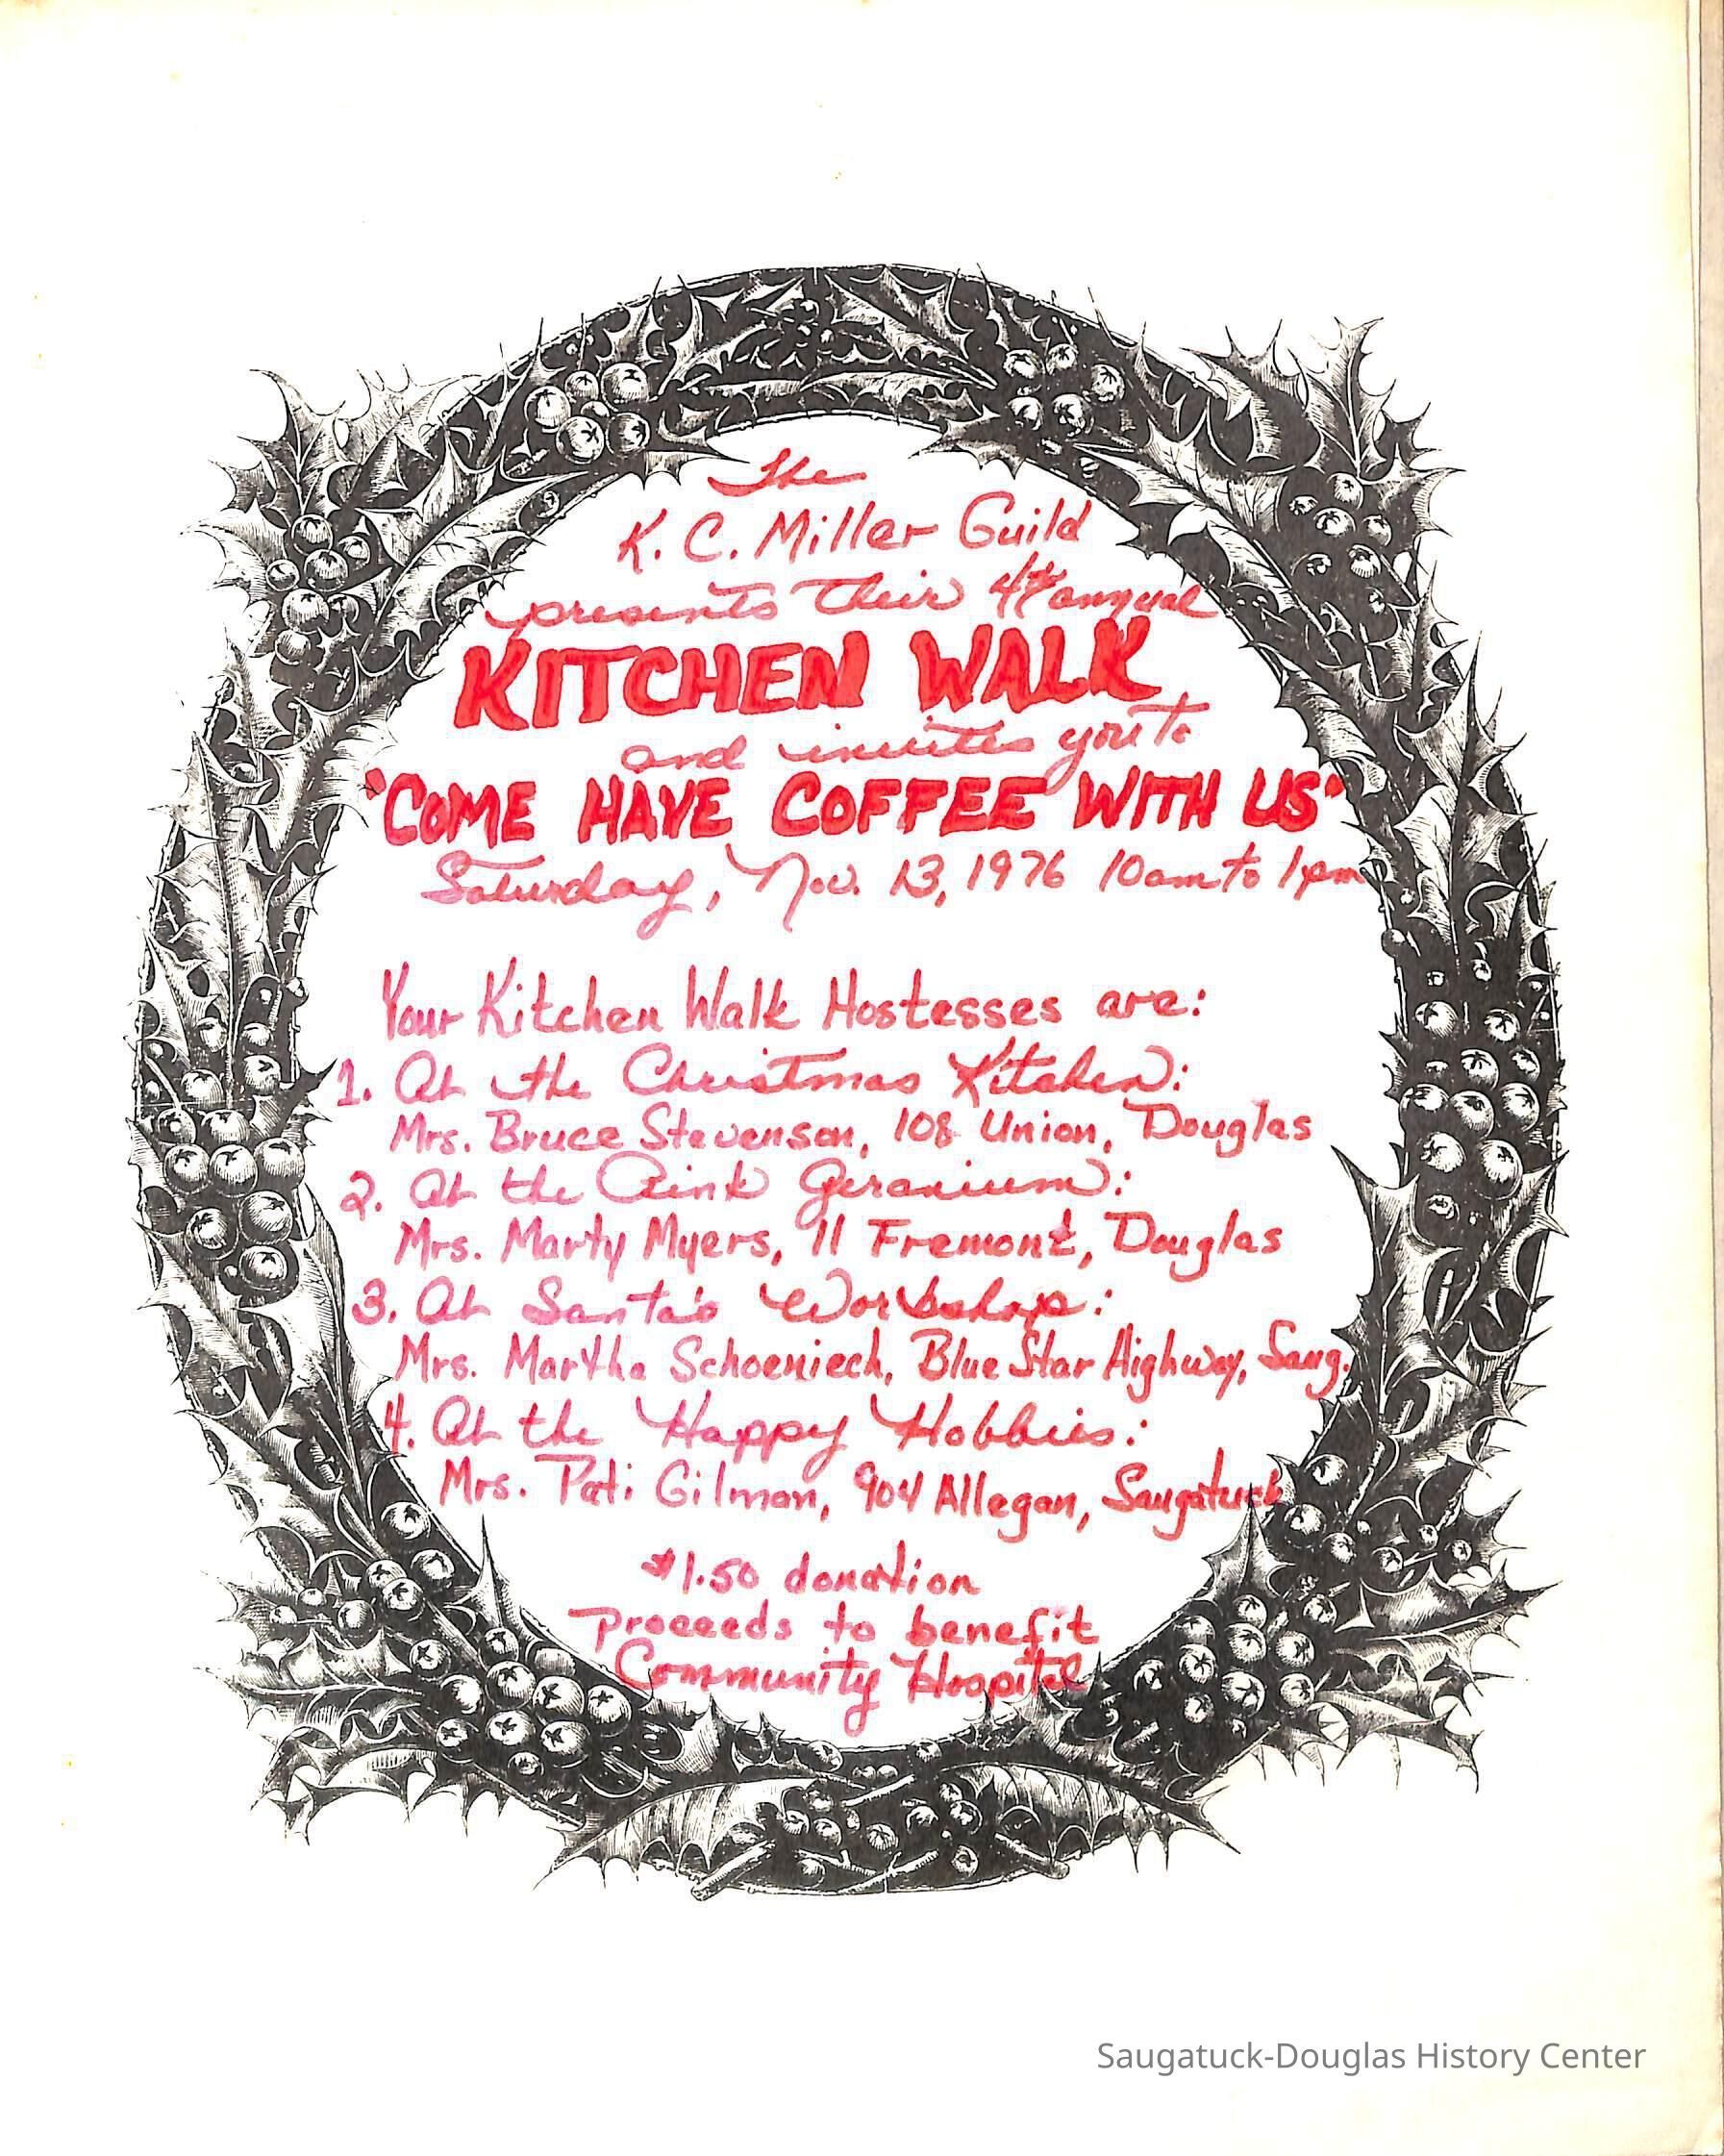 The
K. C. Miller Guild
presents their 4th annual
KITCHEN WALK
and invites you to
"COME HAVE COFFEE WITH US"
Saturday, Nov. 13, 1976 10am to 1pm
Your Kitchen Walk Hostesses are:
1. At the Christmas Kitchen:
Mrs. Bruce Stevenson, 108 Union, Douglas
2. At the Pink Geranium:
Mrs. Marty Myers, 11 Fremont, Douglas
3. At Santa's Workshop:
Mrs. Martha Schoeniech, Blue Star Highway, Saug.
4. At the Happy Hobbies:
Mrs. Pati Gilman, 904 Allegan, Saugatuck
$1.50 donation
Proceeds to benefit
Community Hospital
Saugatuck-Douglas History Center